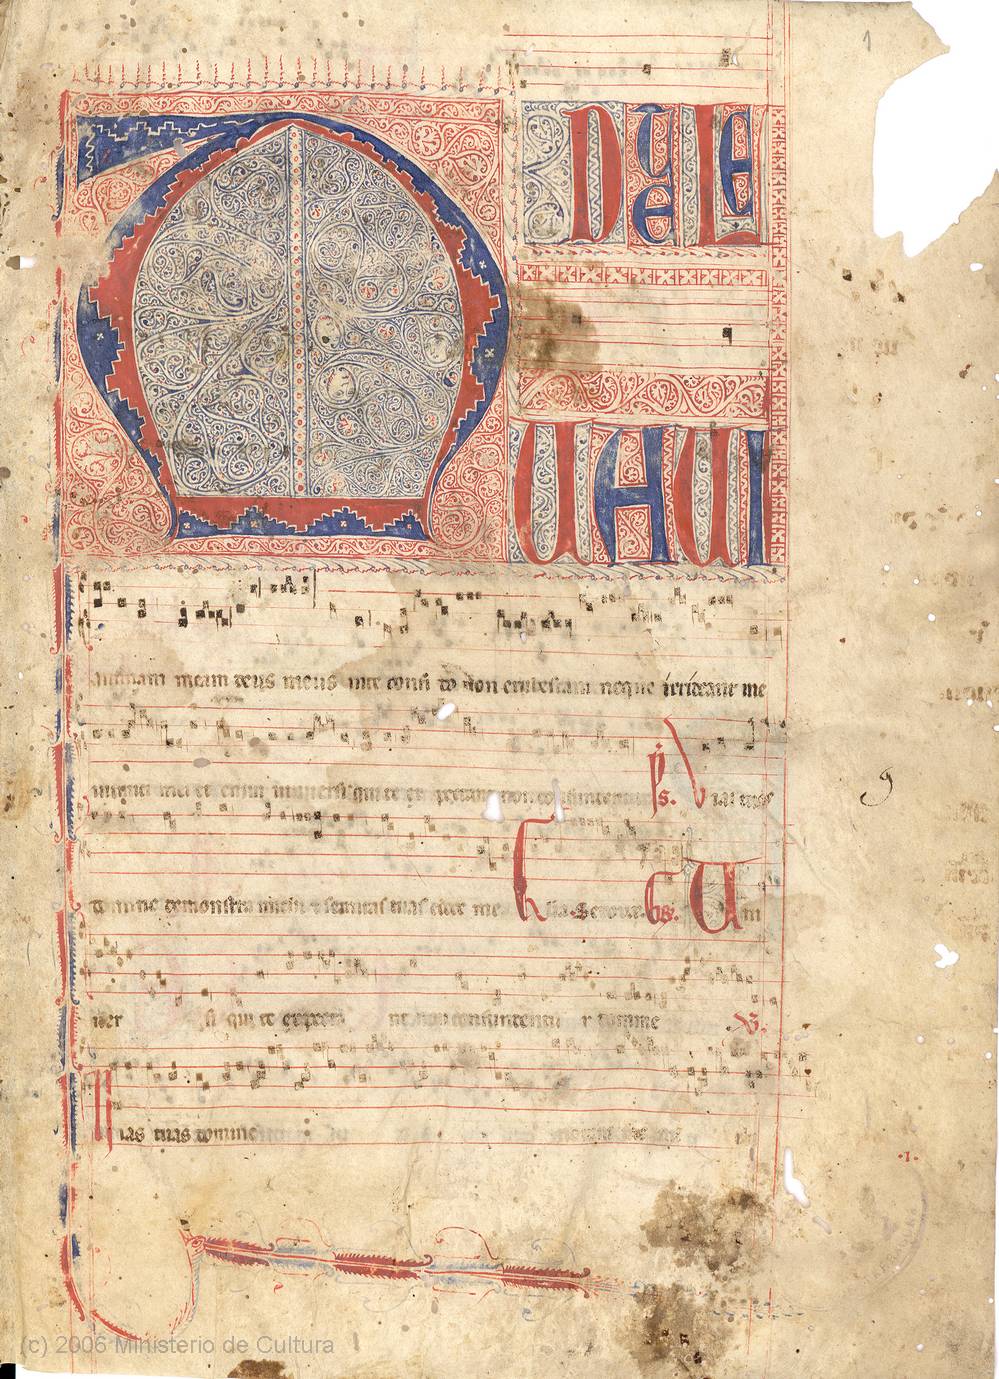 1
AD TE LE
UAUI
animam meam deus meus in te confi do non erubescam neque irrideant me
inimici mei etenim uniuersi qui te expectant non confundentur ps. Vias tuas
domine demonstra michi & semitas tuas edoce me
Uni
uer si qui te expect nt non confundentu r domine V.
Vias tuas domine
·I·
(c) 2006 Ministerio de Cultura